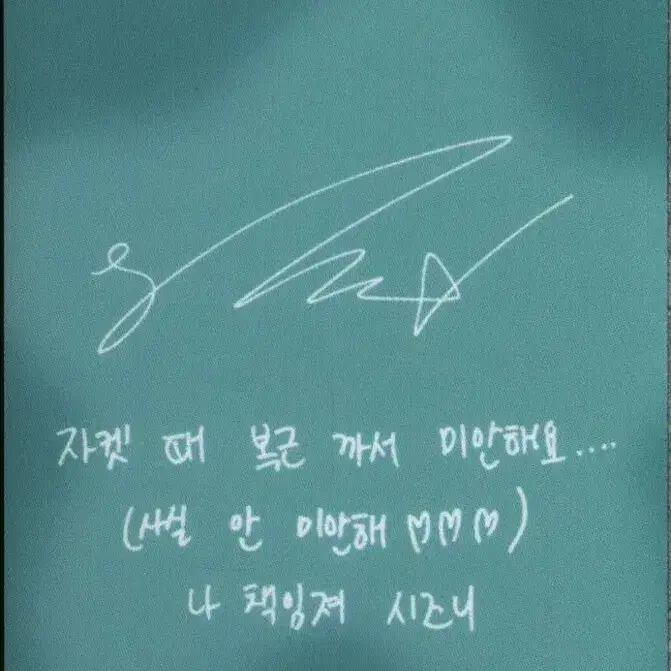 자켓 때 복근 까서 미안해요....
(사실 안 미안해 ♡♡♡)
나 책임져 시즈니